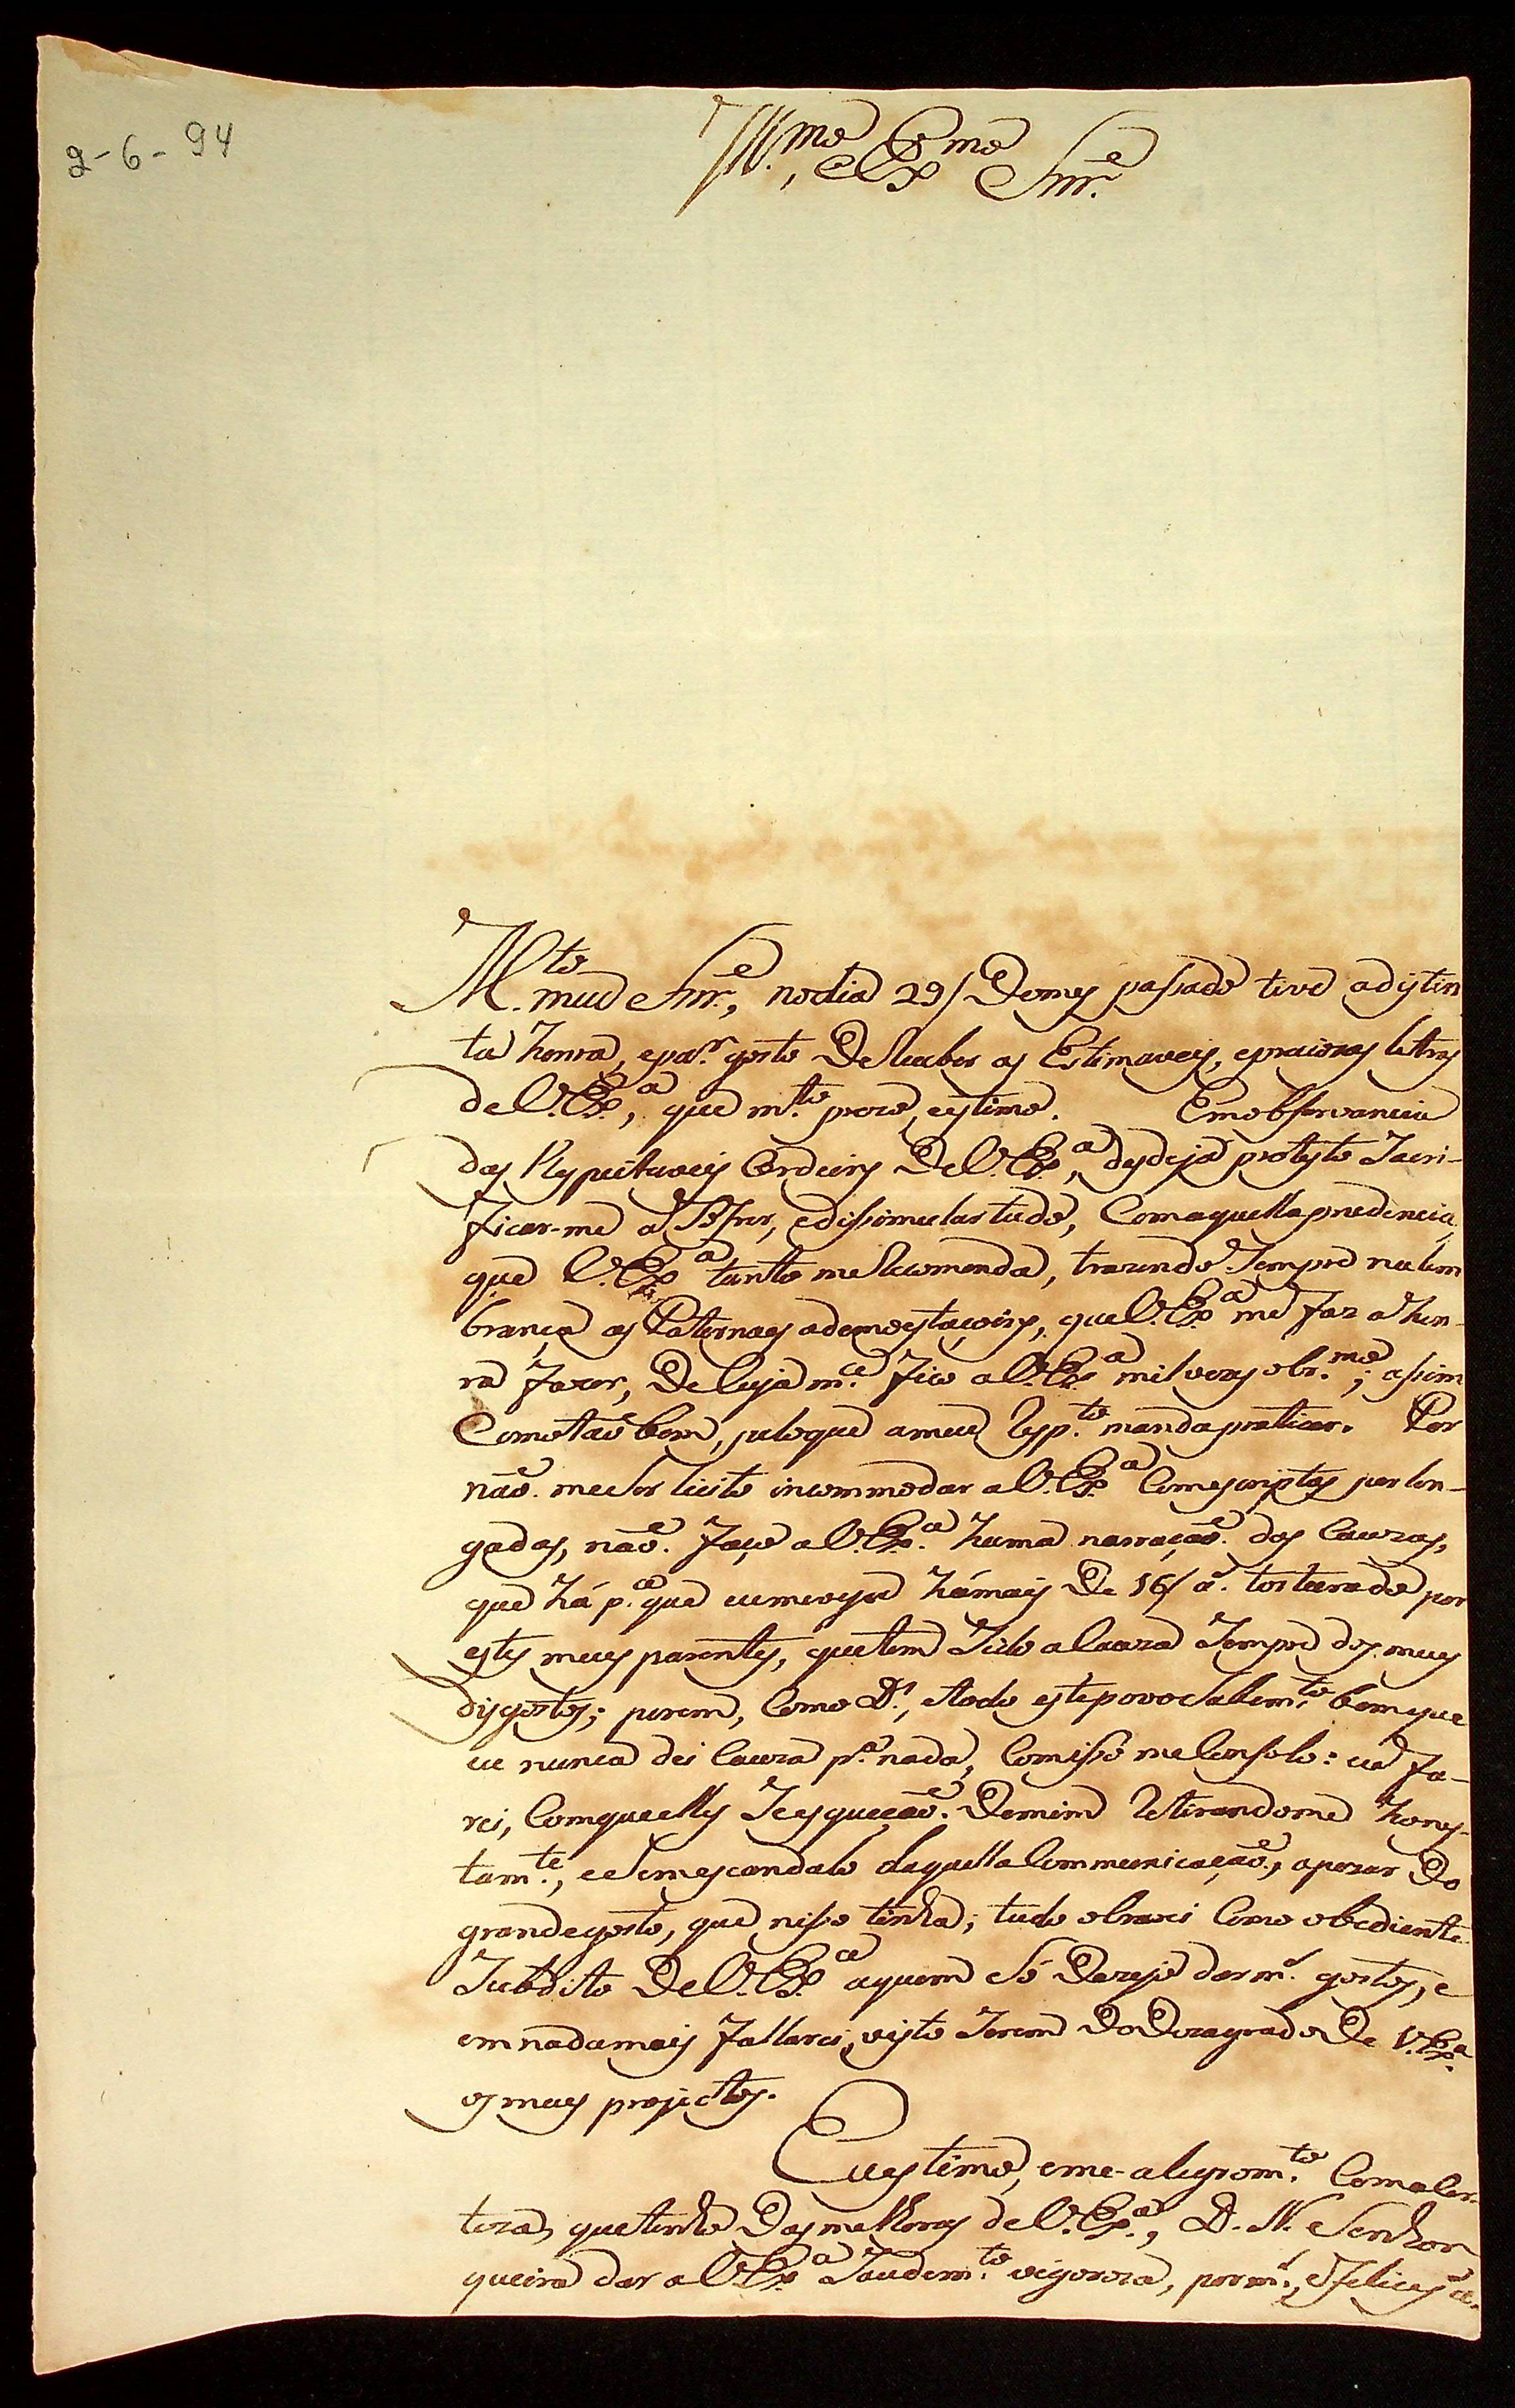 2-6-94
Ill.mo, e Ex.mo Snr.e
M.to meu Snr.e, no dia 29/ Do mes passado tive a distin
ta honra, e par.r gosto De Receber as Estimaveis, e preciozas letras
de V. Ex.a, que m.to prezo, e estimo. Em observancia
das Respeitaveis Ordeins De V. Ex.a, desde já protesto Sacri-
ficar-me a Sofrer, e dissimular tudo, Com aquella prudencia,
que V. Ex.a tanto me Recomenda, trazendo Sempre na lem
brança as Paternaes ademoestaçoins, que V. Ex.a me faz a hon-
ra fazer, De Cuja m.ce fico a V. Ex.a mil vezes obr.mo; assim
Como taõ bem, pelo que a meu Resp.to manda praticar. Por
naõ me Ser licito incommodar a V. Ex.a Com escriptas perlon-
gadas, naõ faço a V. Ex.a huma narraçaõ das Cauzas,
que há p.a que eu me veja há mais De 16/ a. torturado por
estes meus parentes, que tem Sido a Cauza Sempre dos meus
disgostos; porem, Como D.s, e todo este povo Sabem m.to bem que
eu nunca dei Cauza p.a nada, Com isso me Consolo: eu fa-
rei, Com que elles Se esqueçaõ De mim Retirandome hones-
tam.te, e Sem escandalo daquella Communicaçaõ, apezar Do
grande gosto, que nisso tinha; tudo obrarei Como obediente
Subdito De V. Ex.a a quem Só Dezejo dar m.s gostos, e
em nada mais fallarei, visto Serem Do Dezagrado De V. Ex.a
os meus projectos.
Eu estimo, e me-alegro m.to Com a Cer-
teza, que tenho Das melhoras de V. Ex.a, D. N. Senhor
queira dar a V. Ex.a Saude m.to vigoroza, por m.s, e felices a.